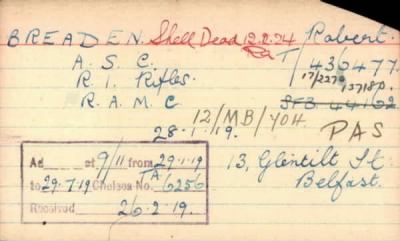 BREADEN. Shell Dead 12.2.24 Robert.
A. S. C. T/436477
R. I. Rifles. 17/2279 137180.
R. A. M. C SFB 44162
12/MB/YOH
28.1.19. PAS
Ad at 9/11 from 29.1.19
to 29.7.19 Chelsea No. 6256
Received 26.2.19.
13, Glentilt St
Belfast.